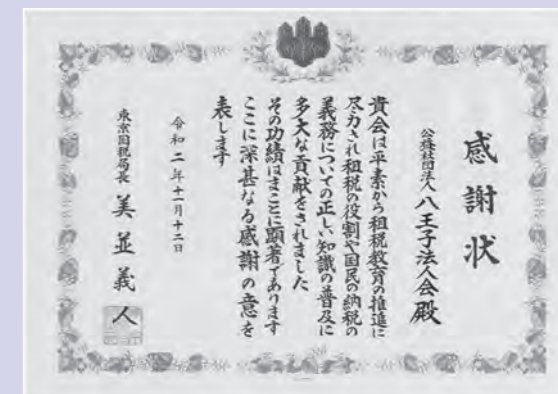 感謝状
公益社団法人八王子法人会殿
貴会は平素から租税教育の推進に
尽力され租税の役割や国民の納税の
義務についての正しい知識の普及に
多大な貢献をされました
その功績はまことに顕著であります
ここに深甚なる感謝の意を
表します
令和二年十一月十二日
東京国税局長 美並義人